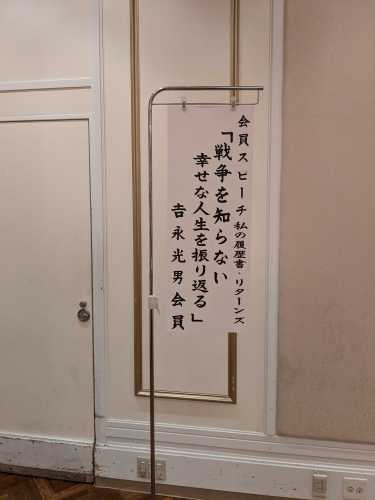 会員スピーチ 私の履歴書・リターンズ
「戦争を知らない
幸せな人生を振り返る」
吉永光男会員